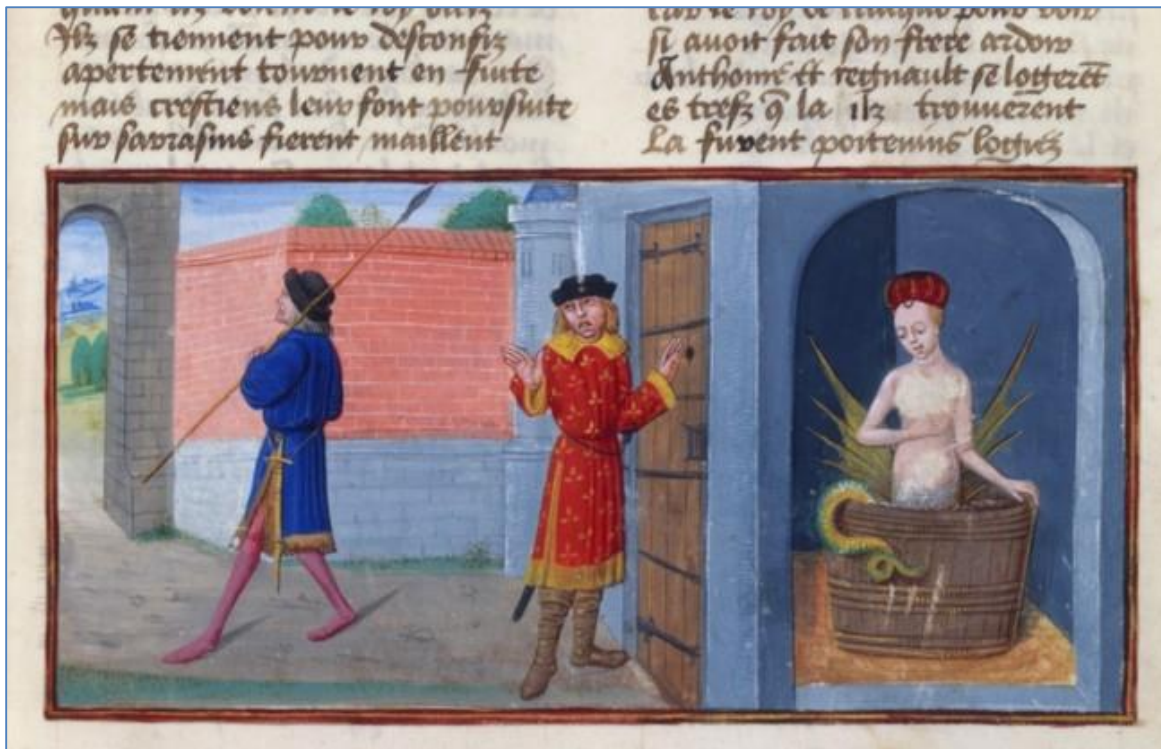 Ilz se tiennent pour desconfiz
apertement tournent en fuite
mais crestiens leur font poursuite
sur sarrasins fierent maillent
si avoit fait son frere ardoir
Anthoine et regnault se logerẽt
es trefz q̃ la ilz trouuerent
La furent poitevins logiez